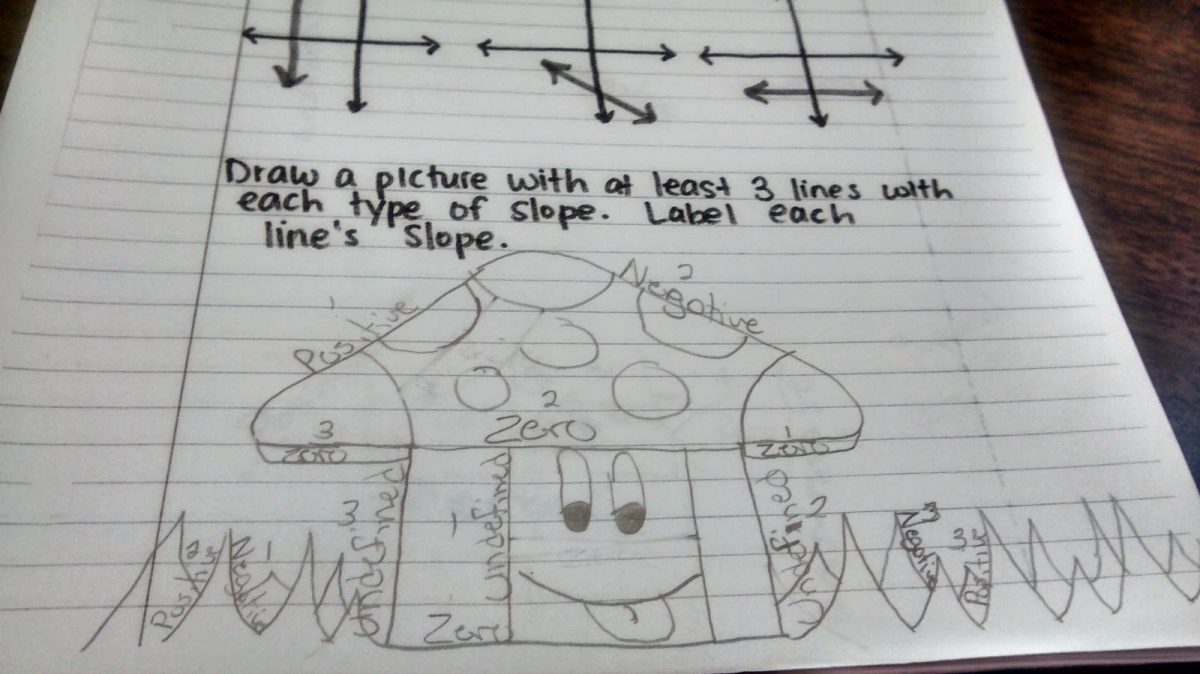 Draw a picture with at least 3 lines with
each type of slope. Label each
line's slope.
1
Positive
2
Negative
2
Zero
3
Zero
1
Zero
3
Undefined
1
Undefined
Undefined
2
2
Positive
1
Negative
3
Negative
3
Positive
Zero